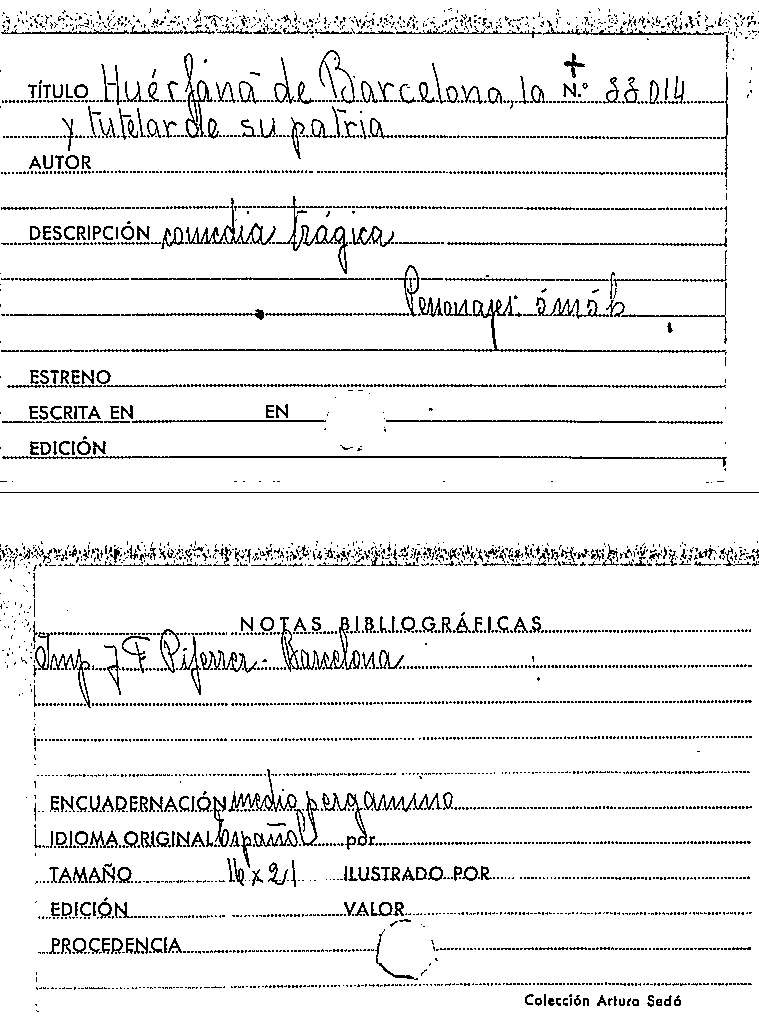 TÍTULO Huérfana de Barcelona, la N.º 33014
y tutelar de su patria
AUTOR
DESCRIPCIÓN comedia trágica
Personajes:
ESTRENO
ESCRITA EN EN
EDICIÓN
NOTAS BIBLIOGRÁFICAS
Imp J F Piferrer - Barcelona
ENCUADERNACIÓN medio pergamino
IDIOMA ORIGINAL Español por
TAMAÑO 16 x 21 ILUSTRADO POR
EDICIÓN VALOR
PROCEDENCIA
Colección Arturo Sedó